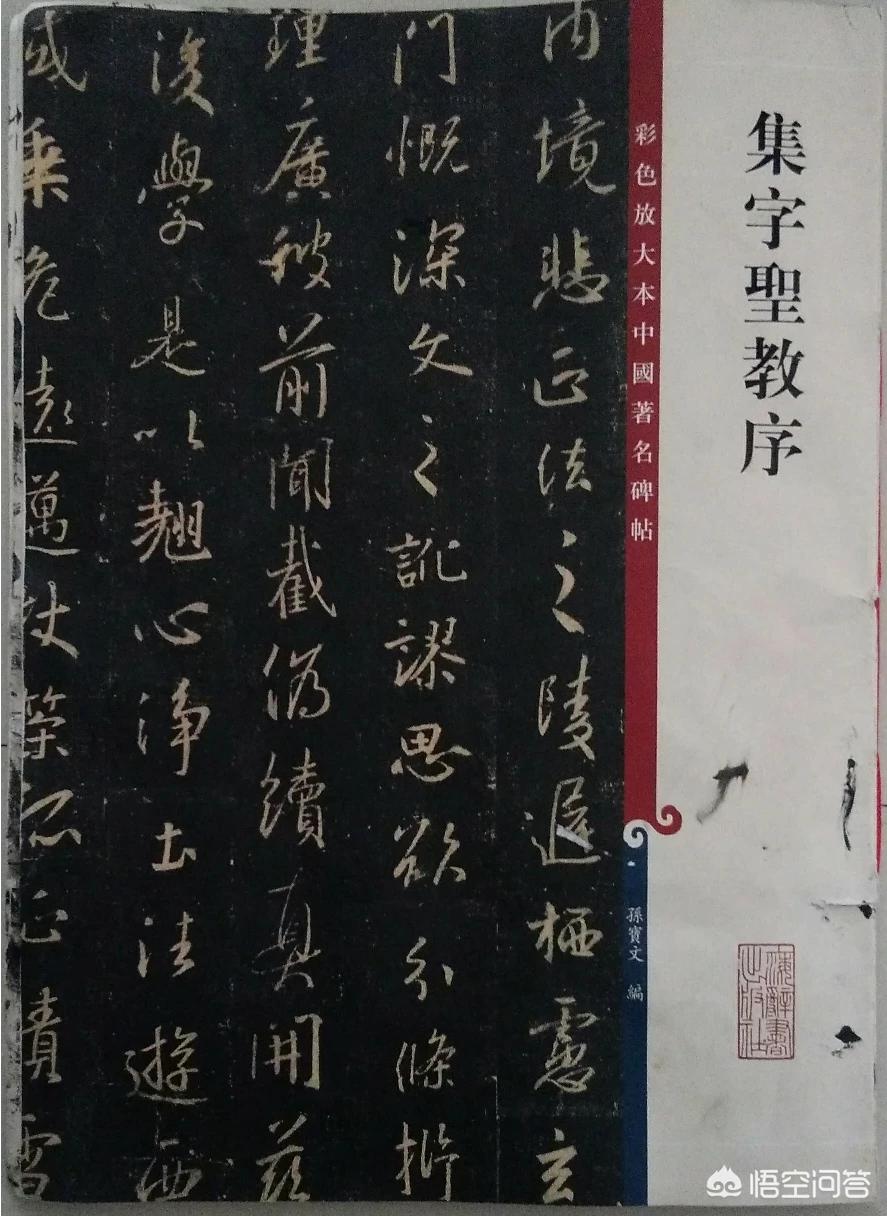 集字聖教序
彩色放大本中國著名碑帖
孫寶文 編
上海辭書
出版社
内境悲正法之陵遲栖慮玄
門慨深文之訛謬思欲分條析
理廣彼前聞截偽續真開茲
後學是以翹心淨土法遊西
域乘危遠邁杖策孤征積雪
悟空问答